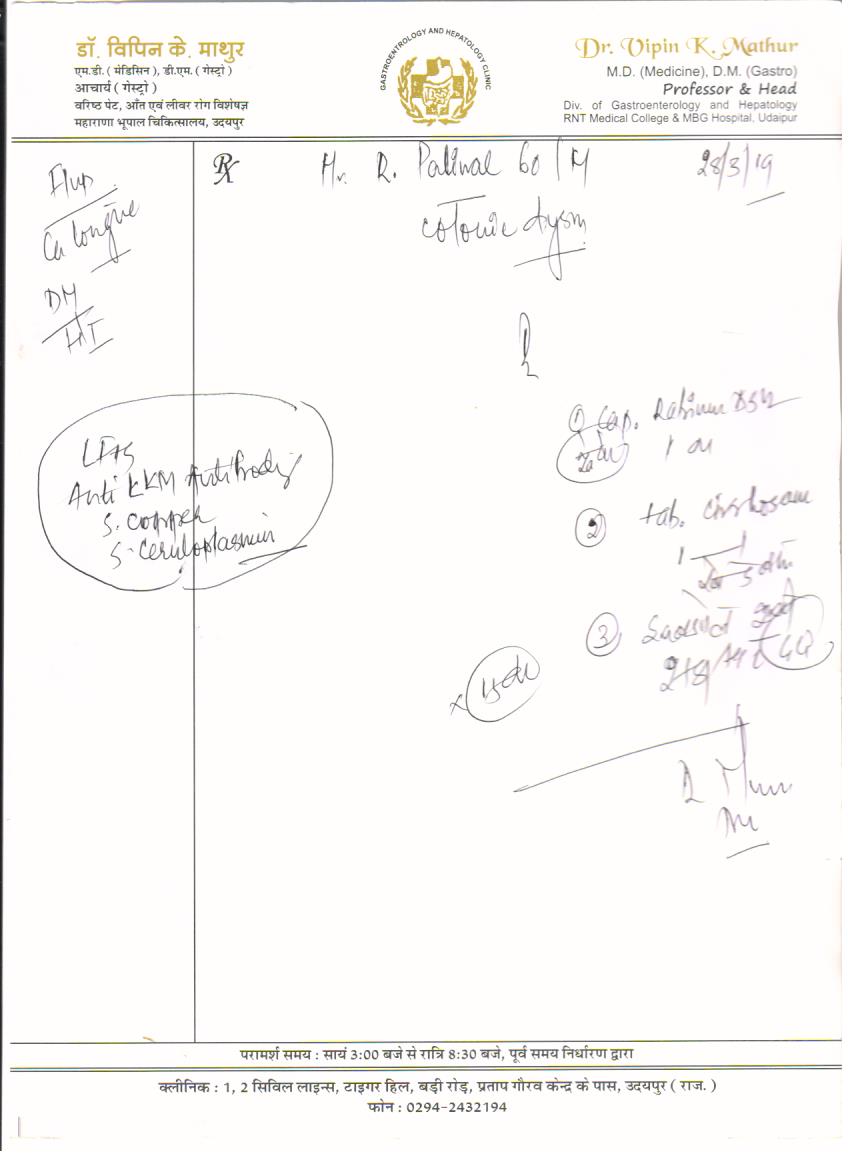 डॉ. विपिन के. माथुर
एम.डी. ( मेडिसिन ), डी.एम. ( गेस्ट्रो )
आचार्य ( गेस्ट्रो )
वरिष्ठ पेट, आँत एवं लीवर रोग विशेषज्ञ
महाराणा भूपाल चिकित्सालय, उदयपुर
GASTROENTROLOGY AND HEPATOLOGY CLINIC
Dr. Vipin K. Mathur
M.D. (Medicine), D.M. (Gastro)
Professor & Head
Div. of Gastroenterology and Hepatology
RNT Medical College & MBG Hospital, Udaipur
Rx
Mr. R. Paliwal 60 / M
28/3/19
Colonic dysm
F/up
Ca tongue
DM
HT
LFTs
Anti LKM Antibody
S. Copper
S. Ceruloplasmin
① Cap. DSR
1
② tab.
1 1
③
परामर्श समय : सायं 3:00 बजे से रात्रि 8:30 बजे, पूर्व समय निर्धारण द्वारा
क्लीनिक : 1, 2 सिविल लाइन्स, टाइगर हिल, बड़ी रोड़, प्रताप गौरव केन्द्र के पास, उदयपुर ( राज. )
फोन : 0294-2432194